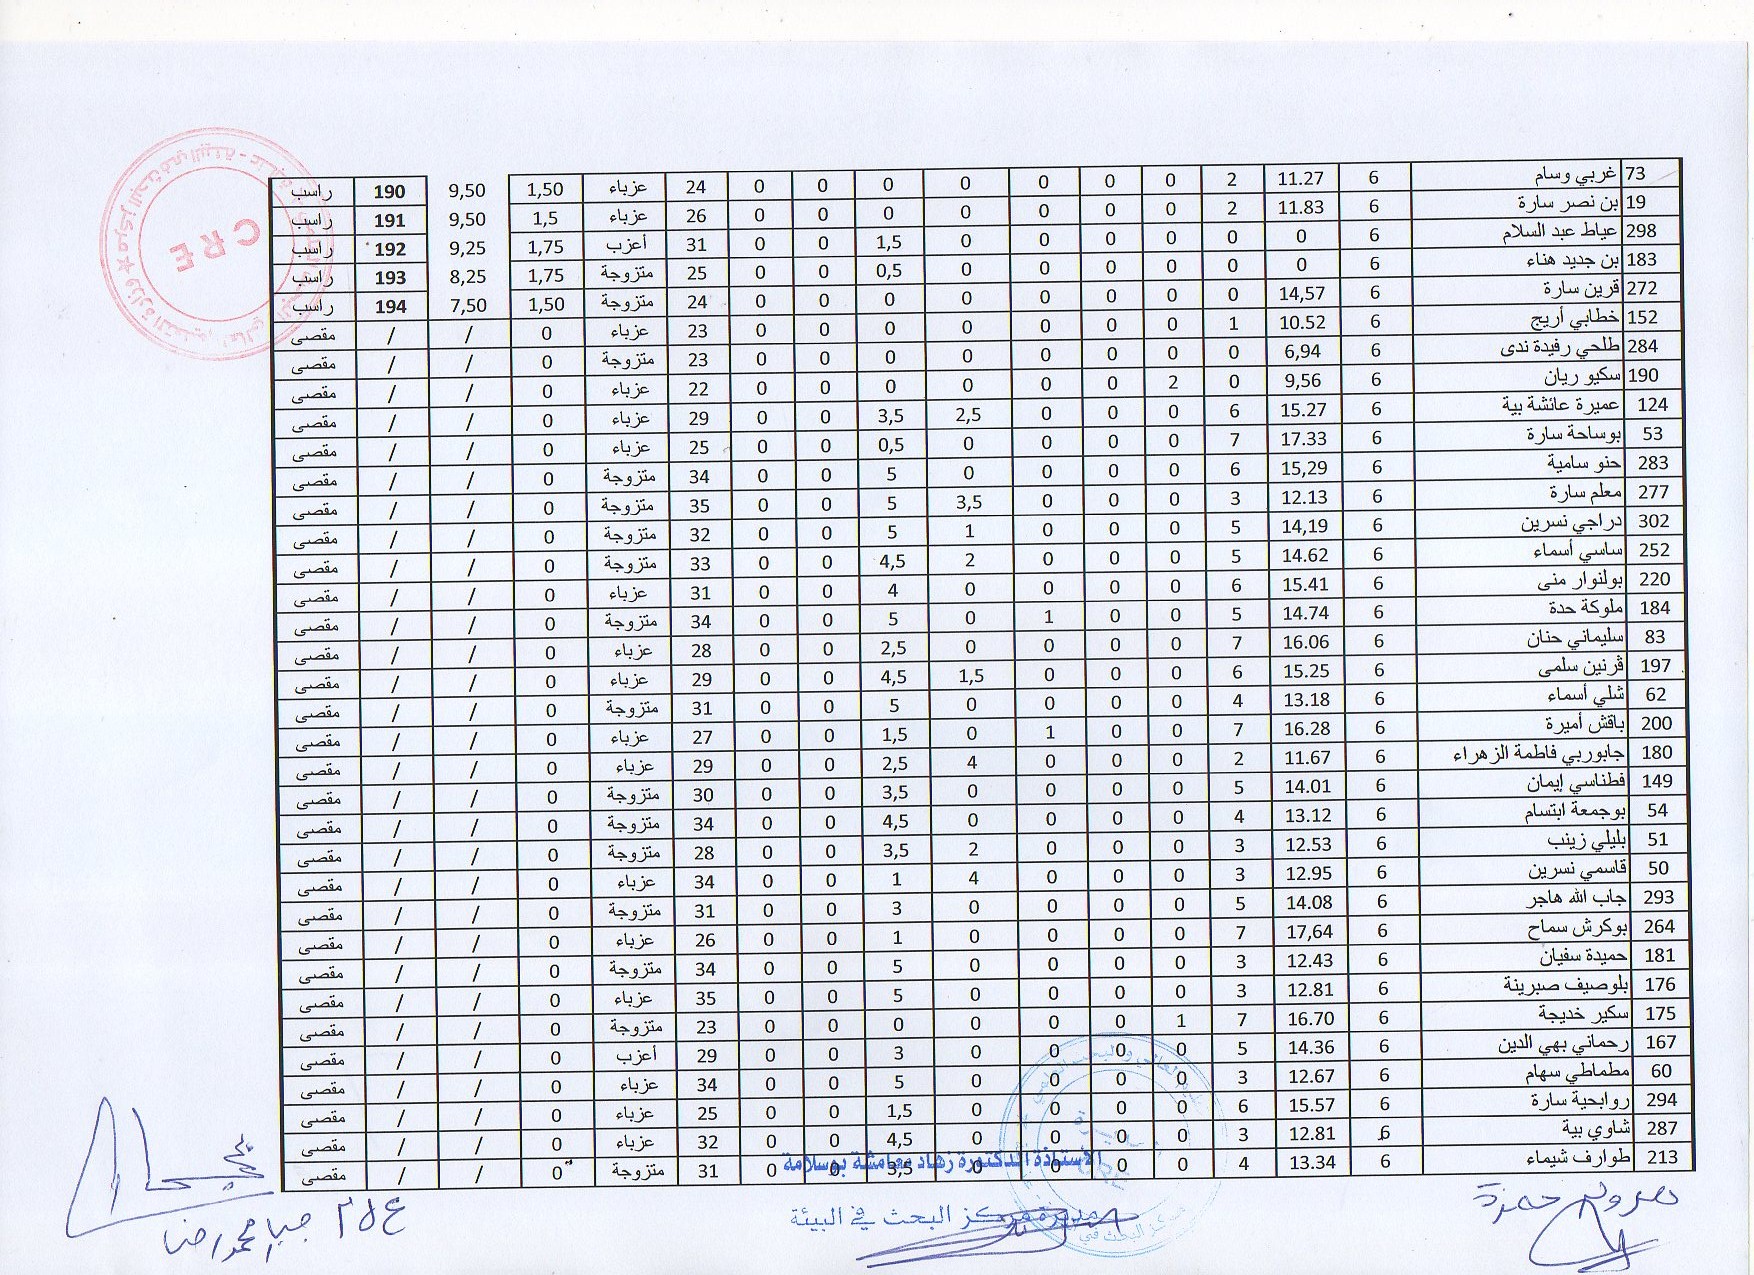 73 غربي وسام 6 11.27 2 0 0 0 0 0 0 0 24 عزباء 1,50 9,50 190 راسب
19 بن نصر سارة 6 11.83 2 0 0 0 0 0 0 0 26 عزباء 1,5 9,50 191 راسب
298 عياط عبد السلام 6 0 0 0 0 0 0 1,5 0 0 31 أعزب 1,75 9,25 192 راسب
183 بن جديد هناء 6 0 0 0 0 0 0 0,5 0 0 25 متزوجة 1,75 8,25 193 راسب
272 قرين سارة 6 14,57 0 0 0 0 0 0 0 0 24 متزوجة 1,50 7,50 194 راسب
152 خطابي أريج 6 10.52 1 0 0 0 0 0 0 0 23 عزباء 0 / / مقصى
284 طلحي رفيدة ندى 6 6,94 0 0 0 0 0 0 0 0 23 متزوجة 0 / / مقصى
190 سكيو ريان 6 9,56 0 2 0 0 0 0 0 0 22 عزباء 0 / / مقصى
124 عميرة عائشة بية 6 15.27 6 0 0 0 2,5 3,5 0 0 29 عزباء 0 / / مقصى
53 بوساحة سارة 6 17.33 7 0 0 0 0 0,5 0 0 25 عزباء 0 / / مقصى
283 حنو سامية 6 15,29 6 0 0 0 0 5 0 0 34 متزوجة 0 / / مقصى
277 معلم سارة 6 12.13 3 0 0 0 3,5 5 0 0 35 متزوجة 0 / / مقصى
302 دراجي نسرين 6 14,19 5 0 0 0 1 5 0 0 32 متزوجة 0 / / مقصى
252 ساسي أسماء 6 14.62 5 0 0 0 2 4,5 0 0 33 متزوجة 0 / / مقصى
220 بولنوار منى 6 15.41 6 0 0 0 0 4 0 0 31 عزباء 0 / / مقصى
184 ملوكة حدة 6 14.74 5 0 0 1 0 5 0 0 34 متزوجة 0 / / مقصى
83 سليماني حنان 6 16.06 7 0 0 0 0 2,5 0 0 28 عزباء 0 / / مقصى
197 ڤرنين سلمى 6 15.25 6 0 0 0 1,5 4,5 0 0 29 عزباء 0 / / مقصى
62 شلي أسماء 6 13.18 4 0 0 0 0 5 0 0 31 متزوجة 0 / / مقصى
200 باقش أميرة 6 16.28 7 0 0 1 0 1,5 0 0 27 عزباء 0 / / مقصى
180 جابوربي فاطمة الزهراء 6 11.67 2 0 0 0 4 2,5 0 0 29 عزباء 0 / / مقصى
149 فطناسي إيمان 6 14.01 5 0 0 0 0 3,5 0 0 30 متزوجة 0 / / مقصى
54 بوجمعة ابتسام 6 13.12 4 0 0 0 0 4,5 0 0 34 متزوجة 0 / / مقصى
51 بليلي زينب 6 12.53 3 0 0 0 2 3,5 0 0 28 متزوجة 0 / / مقصى
50 قاسمي نسرين 6 12.95 3 0 0 0 4 1 0 0 34 عزباء 0 / / مقصى
293 جاب الله هاجر 6 14.08 5 0 0 0 0 3 0 0 31 متزوجة 0 / / مقصى
264 بوكرش سماح 6 17,64 7 0 0 0 0 1 0 0 26 عزباء 0 / / مقصى
181 حميدة سفيان 6 12.43 3 0 0 0 0 5 0 0 34 متزوجة 0 / / مقصى
176 بلوصيف صبرينة 6 12.81 3 0 0 0 0 5 0 0 35 عزباء 0 / / مقصى
175 سكير خديجة 6 16.70 7 1 0 0 0 0 0 0 23 متزوجة 0 / / مقصى
167 رحماني بهي الدين 6 14.36 5 0 0 0 0 3 0 0 29 أعزب 0 / / مقصى
60 مطماطي سهام 6 12.67 3 0 0 0 0 5 0 0 34 عزباء 0 / / مقصى
294 روابحية سارة 6 15.57 6 0 0 0 0 1,5 0 0 25 عزباء 0 / / مقصى
287 شاوي بية 6 12.81 3 0 0 0 0 4,5 0 0 32 عزباء 0 / / مقصى
213 طوارف شيماء 6 13.34 4 0 0 0 0 3,5 0 0 31 متزوجة 0 / / مقصى
CRE
الأستاذة الدكتورة زهاد معامشة بوسلامة
مديرة مركز البحث في البيئة
حمزة
محمد رضا